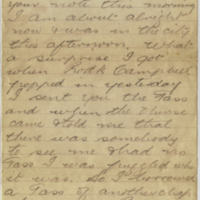 your note this morning
I am about alright
now & was in the city
this afternoon. What
a surprise I got
when Campbell
popped in yesterday
I sent you the Pass
and when the Nurse
came & told me that
there was somebody
to see me & had his
Pass I was puzzled who
it was. So I borrowed
a Pass of another chap